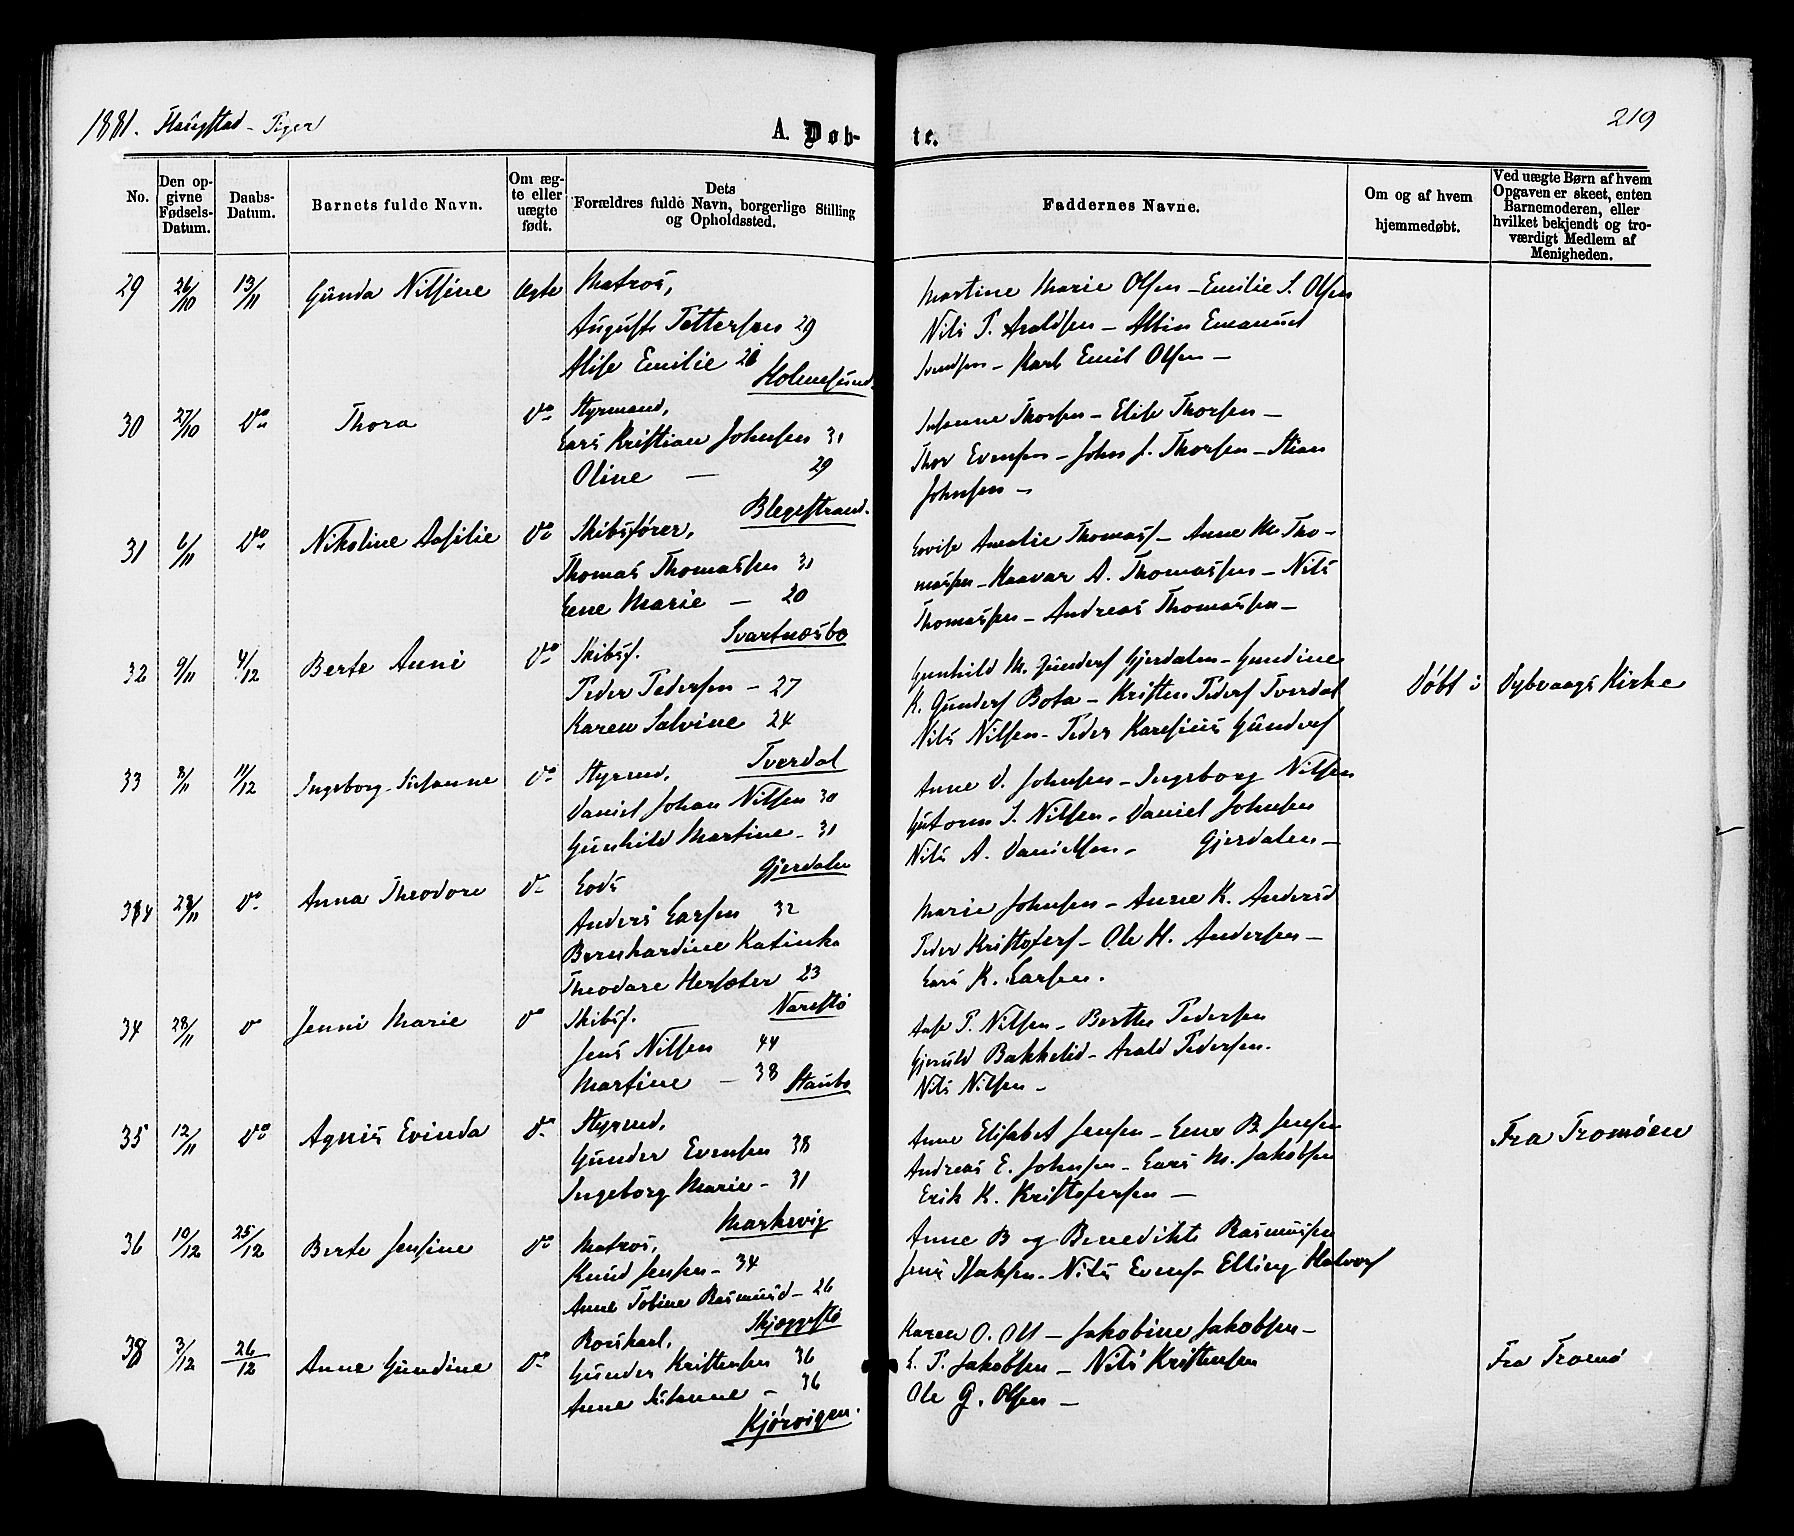 1881. Flangstad - Piger
A. Døb-
te.
219
No.
Den op-
givne
Fødsels-
Datum.
Daabs-
Datum.
Barnets fulde Navn.
Om æg-
te eller
uægte
født.
Dets
Forældres fulde Navn, borgerlige Stilling
og Opholdssted.
Faddernes Navne.
Om og af hvem
hjemmedøbt.
Ved uægte Børn af hvem
Opgaven er skeet, enten
Barnemoderen, eller
hvilket bekjendt og tro-
værdigt Medlem af
Menigheden.
29 26/10 13/11 Gunda Nilsine Ægte Matros,
August Pettersen 29
Alise Emilie 26
Holmesund.
Martine Marie Olsen - Emilie S. Olsen
Nils P. Araldsen - Albin Emanuel
Svendsen - Karl Emil Olsen -
30 27/10 Do Thora Do Styrmand,
Lars Kristian Johnsen 31
Oline - 29
Blegestrand.
Susanne Thorsen - Elise Thorsen -
Thor Evensen - John J. Thorsen - Stian
Johnsen -
31 6/11 Do Nikoline Aasilie Do Skibsfører,
Thomas Thomassen 31
Lene Marie - 20
Svartnæsbo
Lovise Amalie Thomass - Anne M. Tho-
massen - Haavar A. Thomassen - Nils
Thomassen - Andreas Thomassen -
32 9/11 4/12 Berte Anne Do Skibsf.
Peder Pedersen - 27
Karen Salvine 24
Tverdal
Gunhild M. Gunders Gjerdalen - Gundine
K. Gunders Bota - Kristen Peders Tverdal
Nils Nilsen - Peder Karesius Gunders
Døbt i Dybvaags Kirke
33 8/11 11/12 Ingeborg Susanne Do Styrmd,
Daniel Johan Nilsen 30
Gunhild Martine - 31
Gjerdalen
Anne D. Johnsen - Ingeborg Nilsen
Gutorm S. Nilsen - Daniel Johnsen
Nils A. Danielsen - Gjerdalen -
334 28/11 Do Anna Theodore Do Lods
Anders Larsen 32
Bernhardine Katinka
Theodore Hersæter 23
Narestø
Marie Johnsen - Anne K. Andersd
Peder Kristofers - Ole H. Andersen -
Lars K. Larsen.
34 28/11 Do Jenni Marie Do Skibsf.
Jens Nilsen 44
Martine - 38
Staubo
Aase P. Nilsen - Berthe Pedersen
Gjeruld Bakkelid - Arald Pedersen.
Nils Nilsen -
35 12/11 Do Agnis Evinda Do Styrmd,
Gunder Evensen 38
Ingeborg Marie - 31
Markevig
Anne Elisabet Jensen - Lene B. Jensen
Andreas E. Johnsen - Lars M. Jakobsen
Erik K. Kristofersen -
Fra Tromøen
36 10/12 25/12 Berte Jensine Do Matros,
Knud Jensen - 34
Anne Tobine Rasmusd - 26
Skjæggestø
Anne B og Benedikte Rasmussen
Jens Isaksen - Nils Evens - Elling Halvors
38 3/12 26/12 Anne Gundine Do Borskarl,
Gunder Kristensen 36
Anne Susanne - 36
Kjørvigen.
Karen O. Oll - Jakobine Jakobsen -
L. P. Jakobsen - Nils Kristensen
Ole G. Olsen -
Fra Tromø